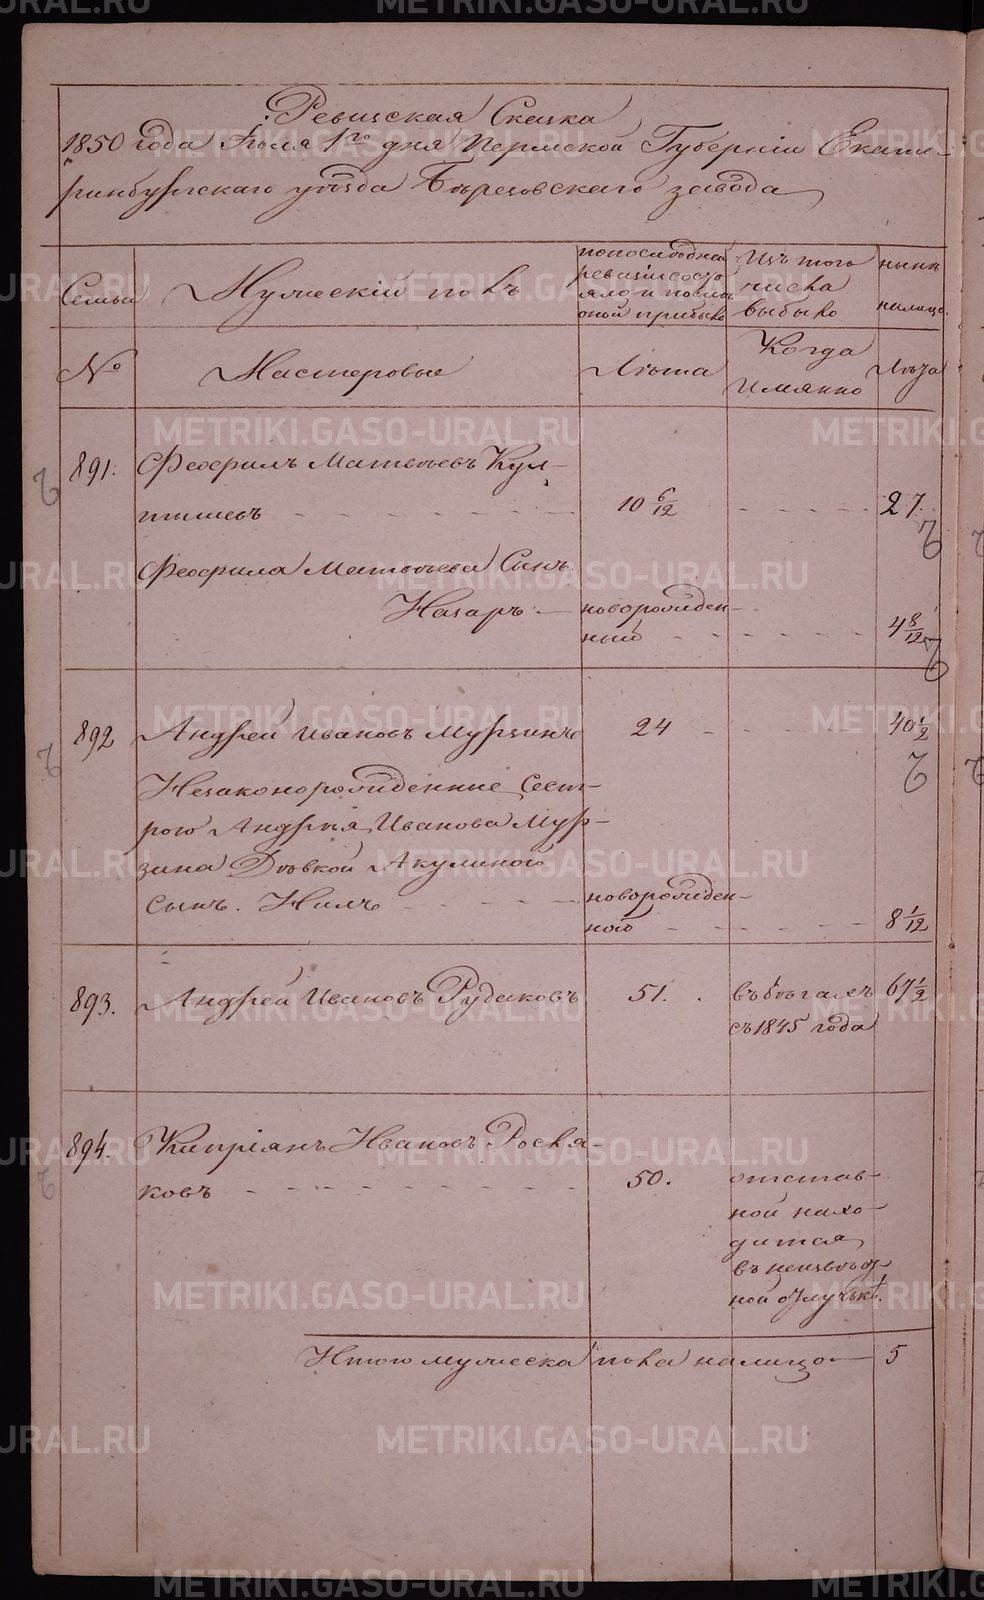 Ревизская Сказка
1850 года Июля 1го дня Пермской Губернiи Екате-
ринбургскаго уѣзда Березовскаго завода
Семьи
Мужескiй полъ
по последней
ревизiи состо
яло и после
оной прибыло
Изъ того
числа
выбыло
нынѣ
на лицо.
№
Мастеровые
Лѣта
Когда
имянно
Лѣта
891. Феофилъ Матвѣевъ Кул-
тышевъ - - - - 10 6/12 - - - - 27.
Феофила Матвѣева Сынъ
Назаръ - новорожден-
ный - - - - 4 8/12
892 Андрей Ивановъ Мурзинъ 24 - - - - 40 1/2
Незаконорожденные Сест-
рою Андрѣя Иванова Мур-
зина Дѣвкой Акулиной
сынъ. Нилъ - - - новорожден-
ной - - - - 8 1/12
893. Андрей Ивановъ Рудаковъ 51. въ бѣгахъ 67 1/2
съ 1845 года
894. Кипрiянъ Ивановъ
ковъ - - - - 50. отстав-
ной нахо-
дится
въ неизвѣст-
ной отлучкѣ.
Итого мужеска пола на лицо - 5
METRIKI.GASO-URAL.RU